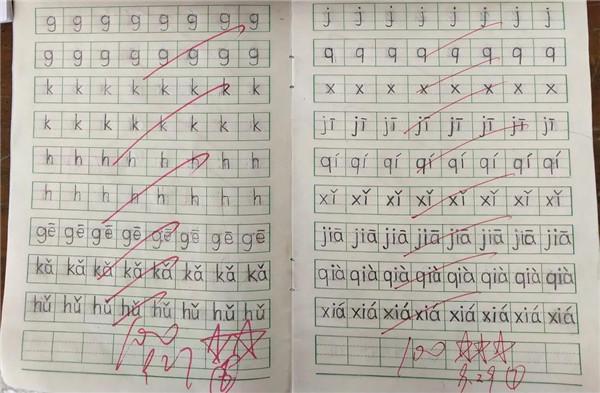 g g g g g g g g
g g g g g g g g
k k k k k k k k
k k k k k k k k
h h h h h h h h
h h h h h h h h
gē gē gē gē gē gē gē gē
kǎ kǎ kǎ kǎ kǎ kǎ kǎ kǎ
hǔ hǔ hǔ hǔ hǔ hǔ hǔ hǔ
100
j j j j j j j j
q q q q q q q q
x x x x x x x x
jī jī jī jī jī jī jī jī
qí qí qí qí qí qí qí qí
xǐ xǐ xǐ xǐ xǐ xǐ xǐ xǐ
jiā jiā jiā jiā jiā jiā jiā jiā
qià qià qià qià qià qià qià qià
xiá xiá xiá xiá xiá xiá xiá xiá
100
8.29